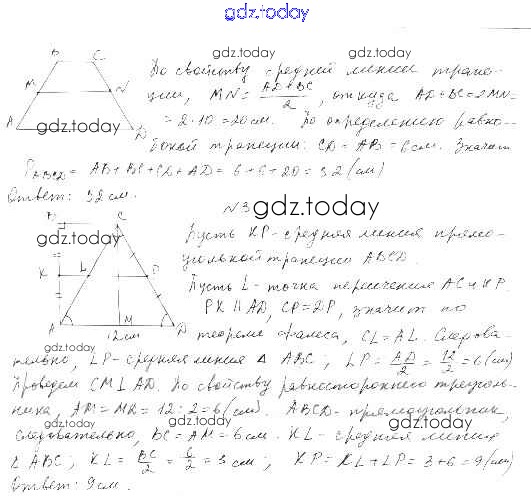 gdz.today
B C
gdz.today gdz.today
По свойству средней линии трапе-
M N
ции, MN = AD+BC / 2, откуда AD+BC=2MN=
A D
gdz.today
= 2·10 = 20 см. По определению равно-
бокой трапеции: CD = AB = 6 см. Значит
gdz.today gdz.today
P ABCD = AB + BC + CD + AD = 6 + 6 + 20 = 32 (см)
Ответ: 32 см.
N3
gdz.today
B C
Пусть KP - средняя линия прямо-
gdz.today
угольной трапеции ABCD.
gdz.today
K L P
Пусть L - точка пересечения AC и KP.
PK || AD, CP = DP, значит по
gdz.today
A M D
12 см
теореме Фалеса, CL = AL. Следова-
тельно, LP - средняя линия Δ ABC; LP = AD/2 = 12/2 = 6 (см)
gdz.today gdz.today
Проведем CM ⊥ AD. По свойству равностороннего треуголь-
ника, AM = MK = 12 : 2 = 6 (см). ABCD - прямоугольник,
gdz.today gdz.today
следовательно, BC = AM = 6 см. KL - средняя линия
Δ ABC; KL = BC/2 = 6/2 = 3 см; KP = KL + LP = 3 + 6 = 9 (см)
Ответ: 9 см.
gdz.today gdz.today